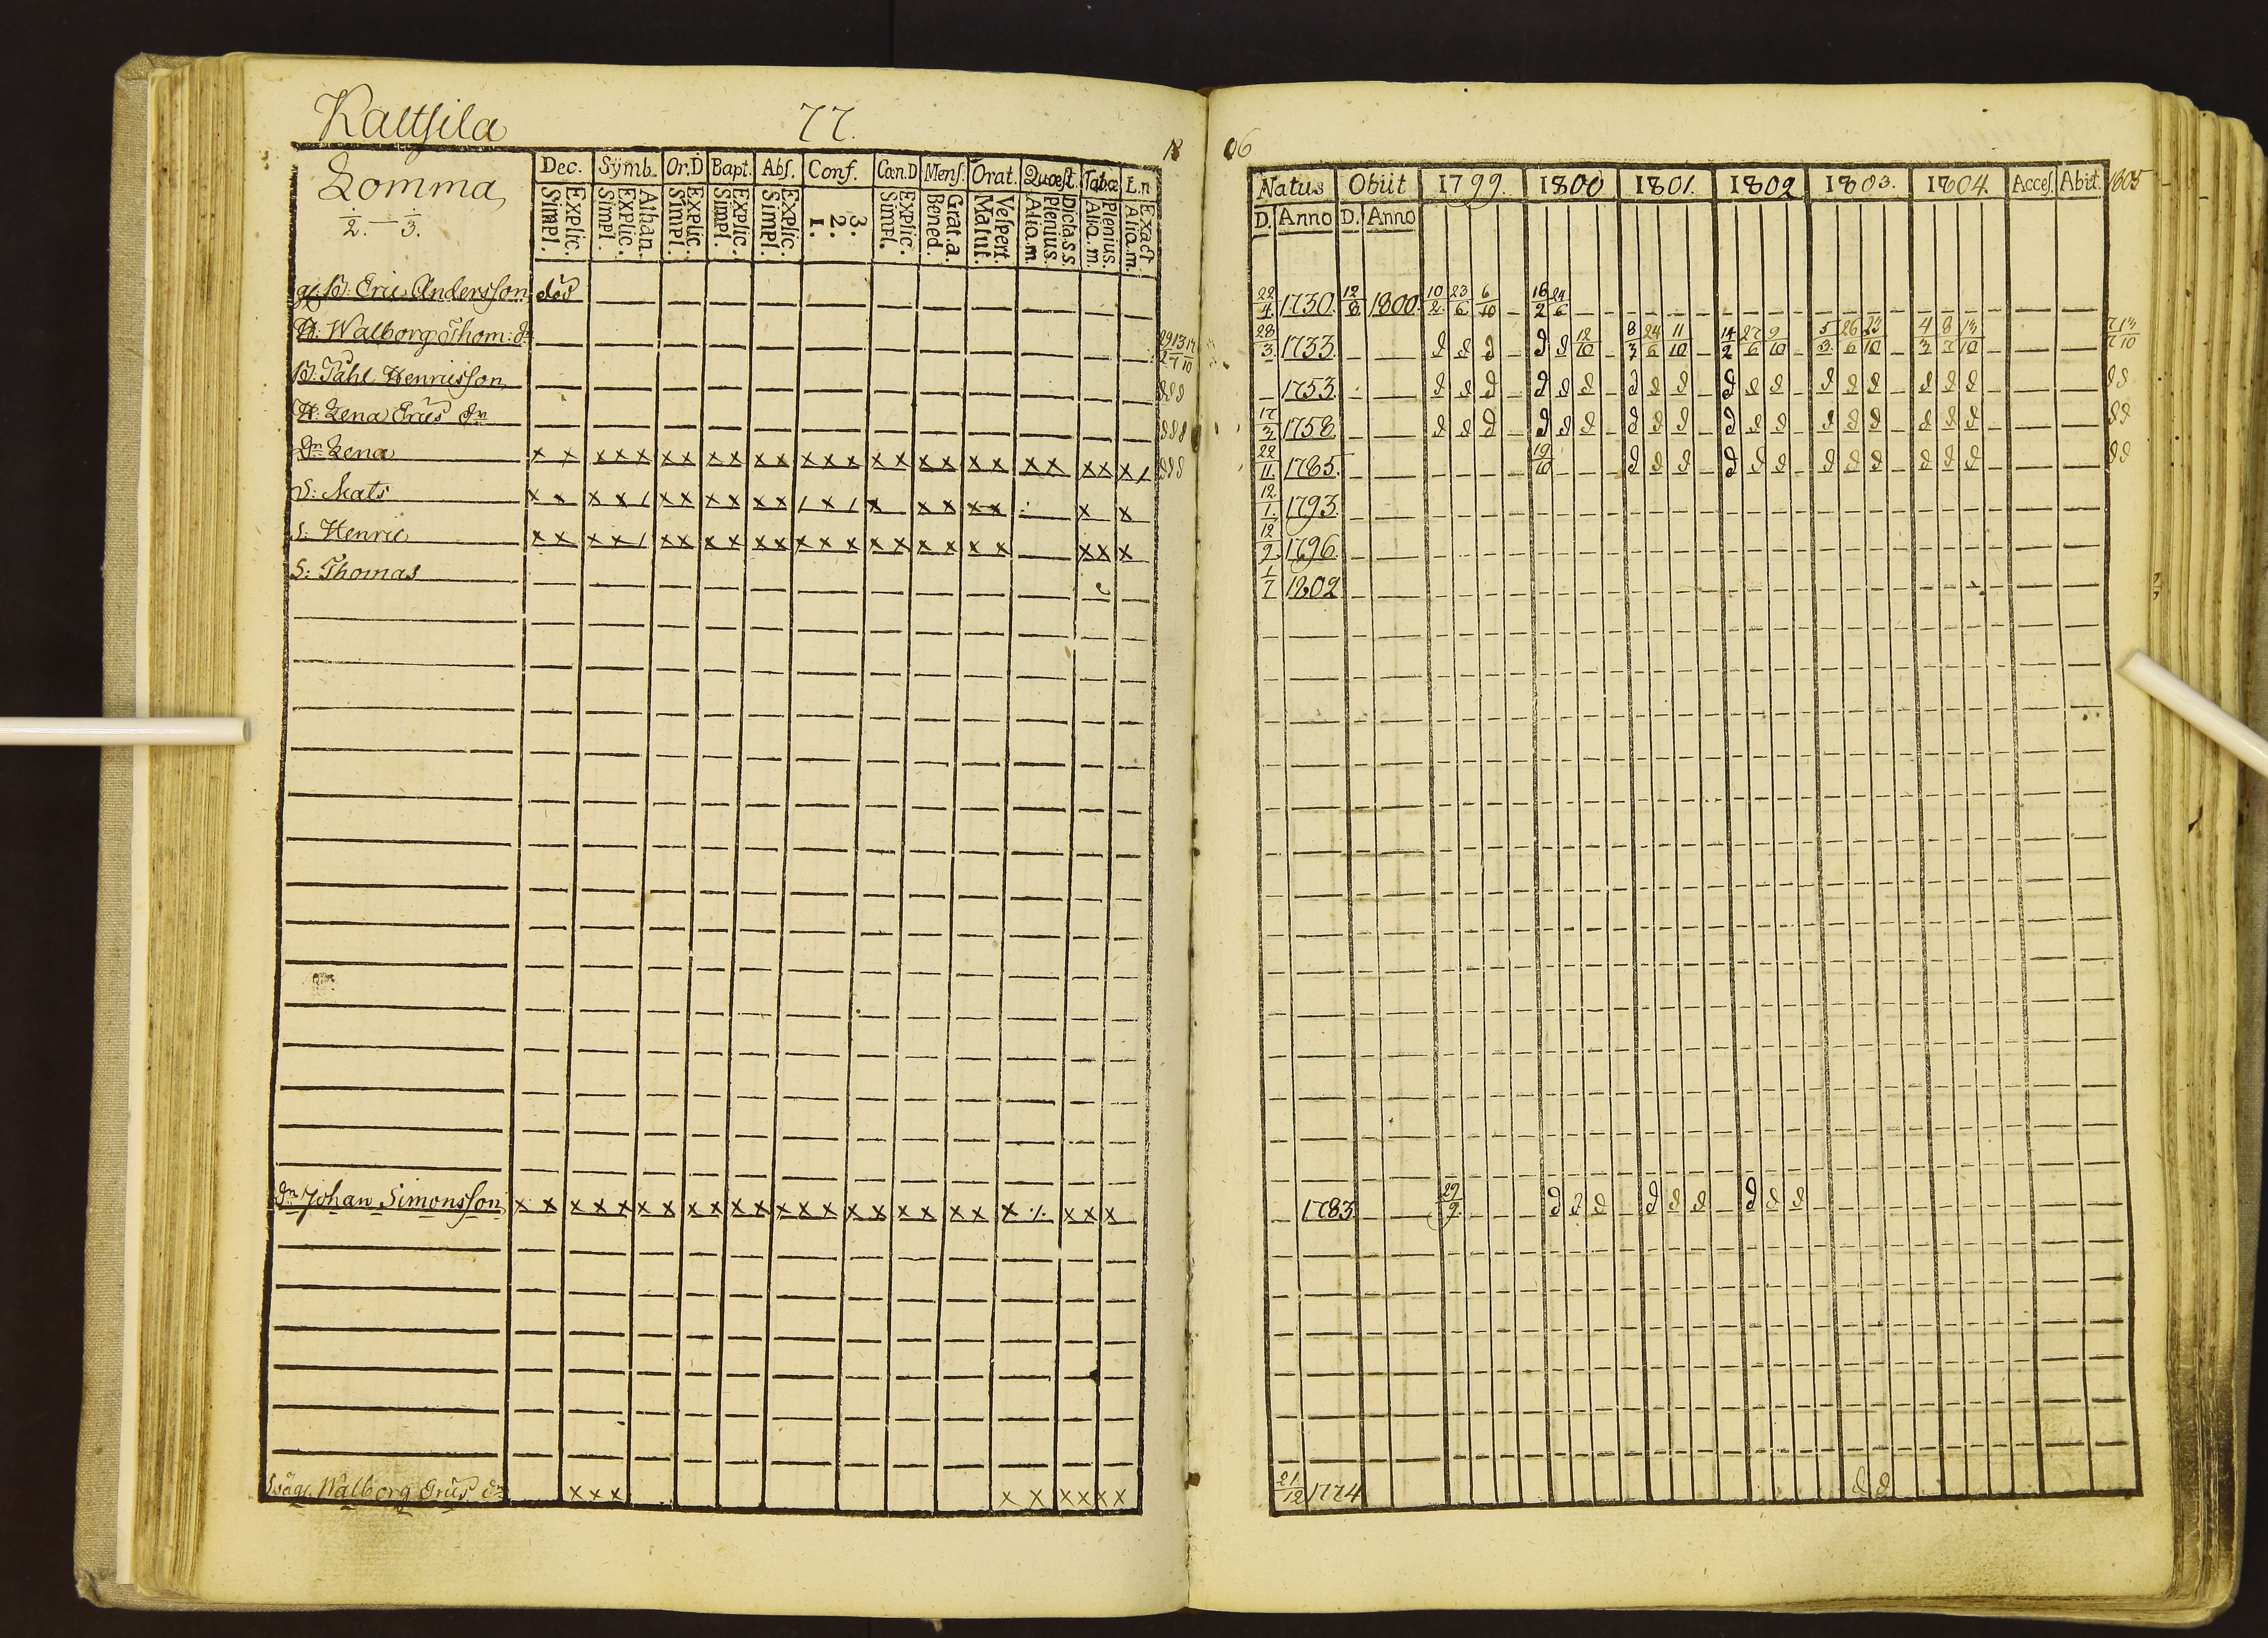 Kaltsila 77.
Lomma
2. — 3.
Dec. Symb. Or.D Bapt. Abs. Conf. Cœn.D Mens. Orat. Quœst. Tabœ L.n
Explic. Simpl. Athan. Explic. Simpl. Explic. Simpl. Explic. Simpl. Explic. Simpl. 3. 2. 1. Explic. Simpl. Grat.a. Bened. Vespert. Matut. Dicta.s.s. Plenius. Aliq.m Plenius. Aliq.m Exact Aliq.m.
gl. B. Eric Andersson död
H. Walborg Thom: dr 29/2 13/7 12/10
B. Påhl Henricsson d d d
H. Lena Erics dr d d d
Dr Lena x x x x x x x x x x x x x x x x x x x x x x x x x x / d d d
S: Mats x x x x / x x x x x x / x / x x x x x x x
S: Henric x x x x / x x x x x x x x x x x x x x x x x x
S: Thomas
dr Johan Simonsson x x x x x x x x x x x x x x x x x x x x x ./. x x x
Walborg Erics dr x x x x x x x x x
18 06
Natus Obiit 1799. 1800 1801. 1802 1803. 1804. Acces. Abiit. 1805
D. Anno D. Anno
22/4 1730. 12/8 1800. 10/2 23/6 6/10 16/2 24/6
28/3 1733 d d d d d 12/10 8/3 24/6 11/10 14/2 27/6 9/10 5/3 26/6 23/10 4/3 8/7 13/10 7/7 13/10
1753 d d d d d d d d d d d d d d d d d d d d
17/3 1758 d d d d d d d d d d d d d d d d d d d d
22/11 1785 19/10 d d d d d d d d d d d d d d
12/1 1793
12/9 1796
1/7 1802
1783 29/9 d d d d d d d d d
21/12 1774 d d